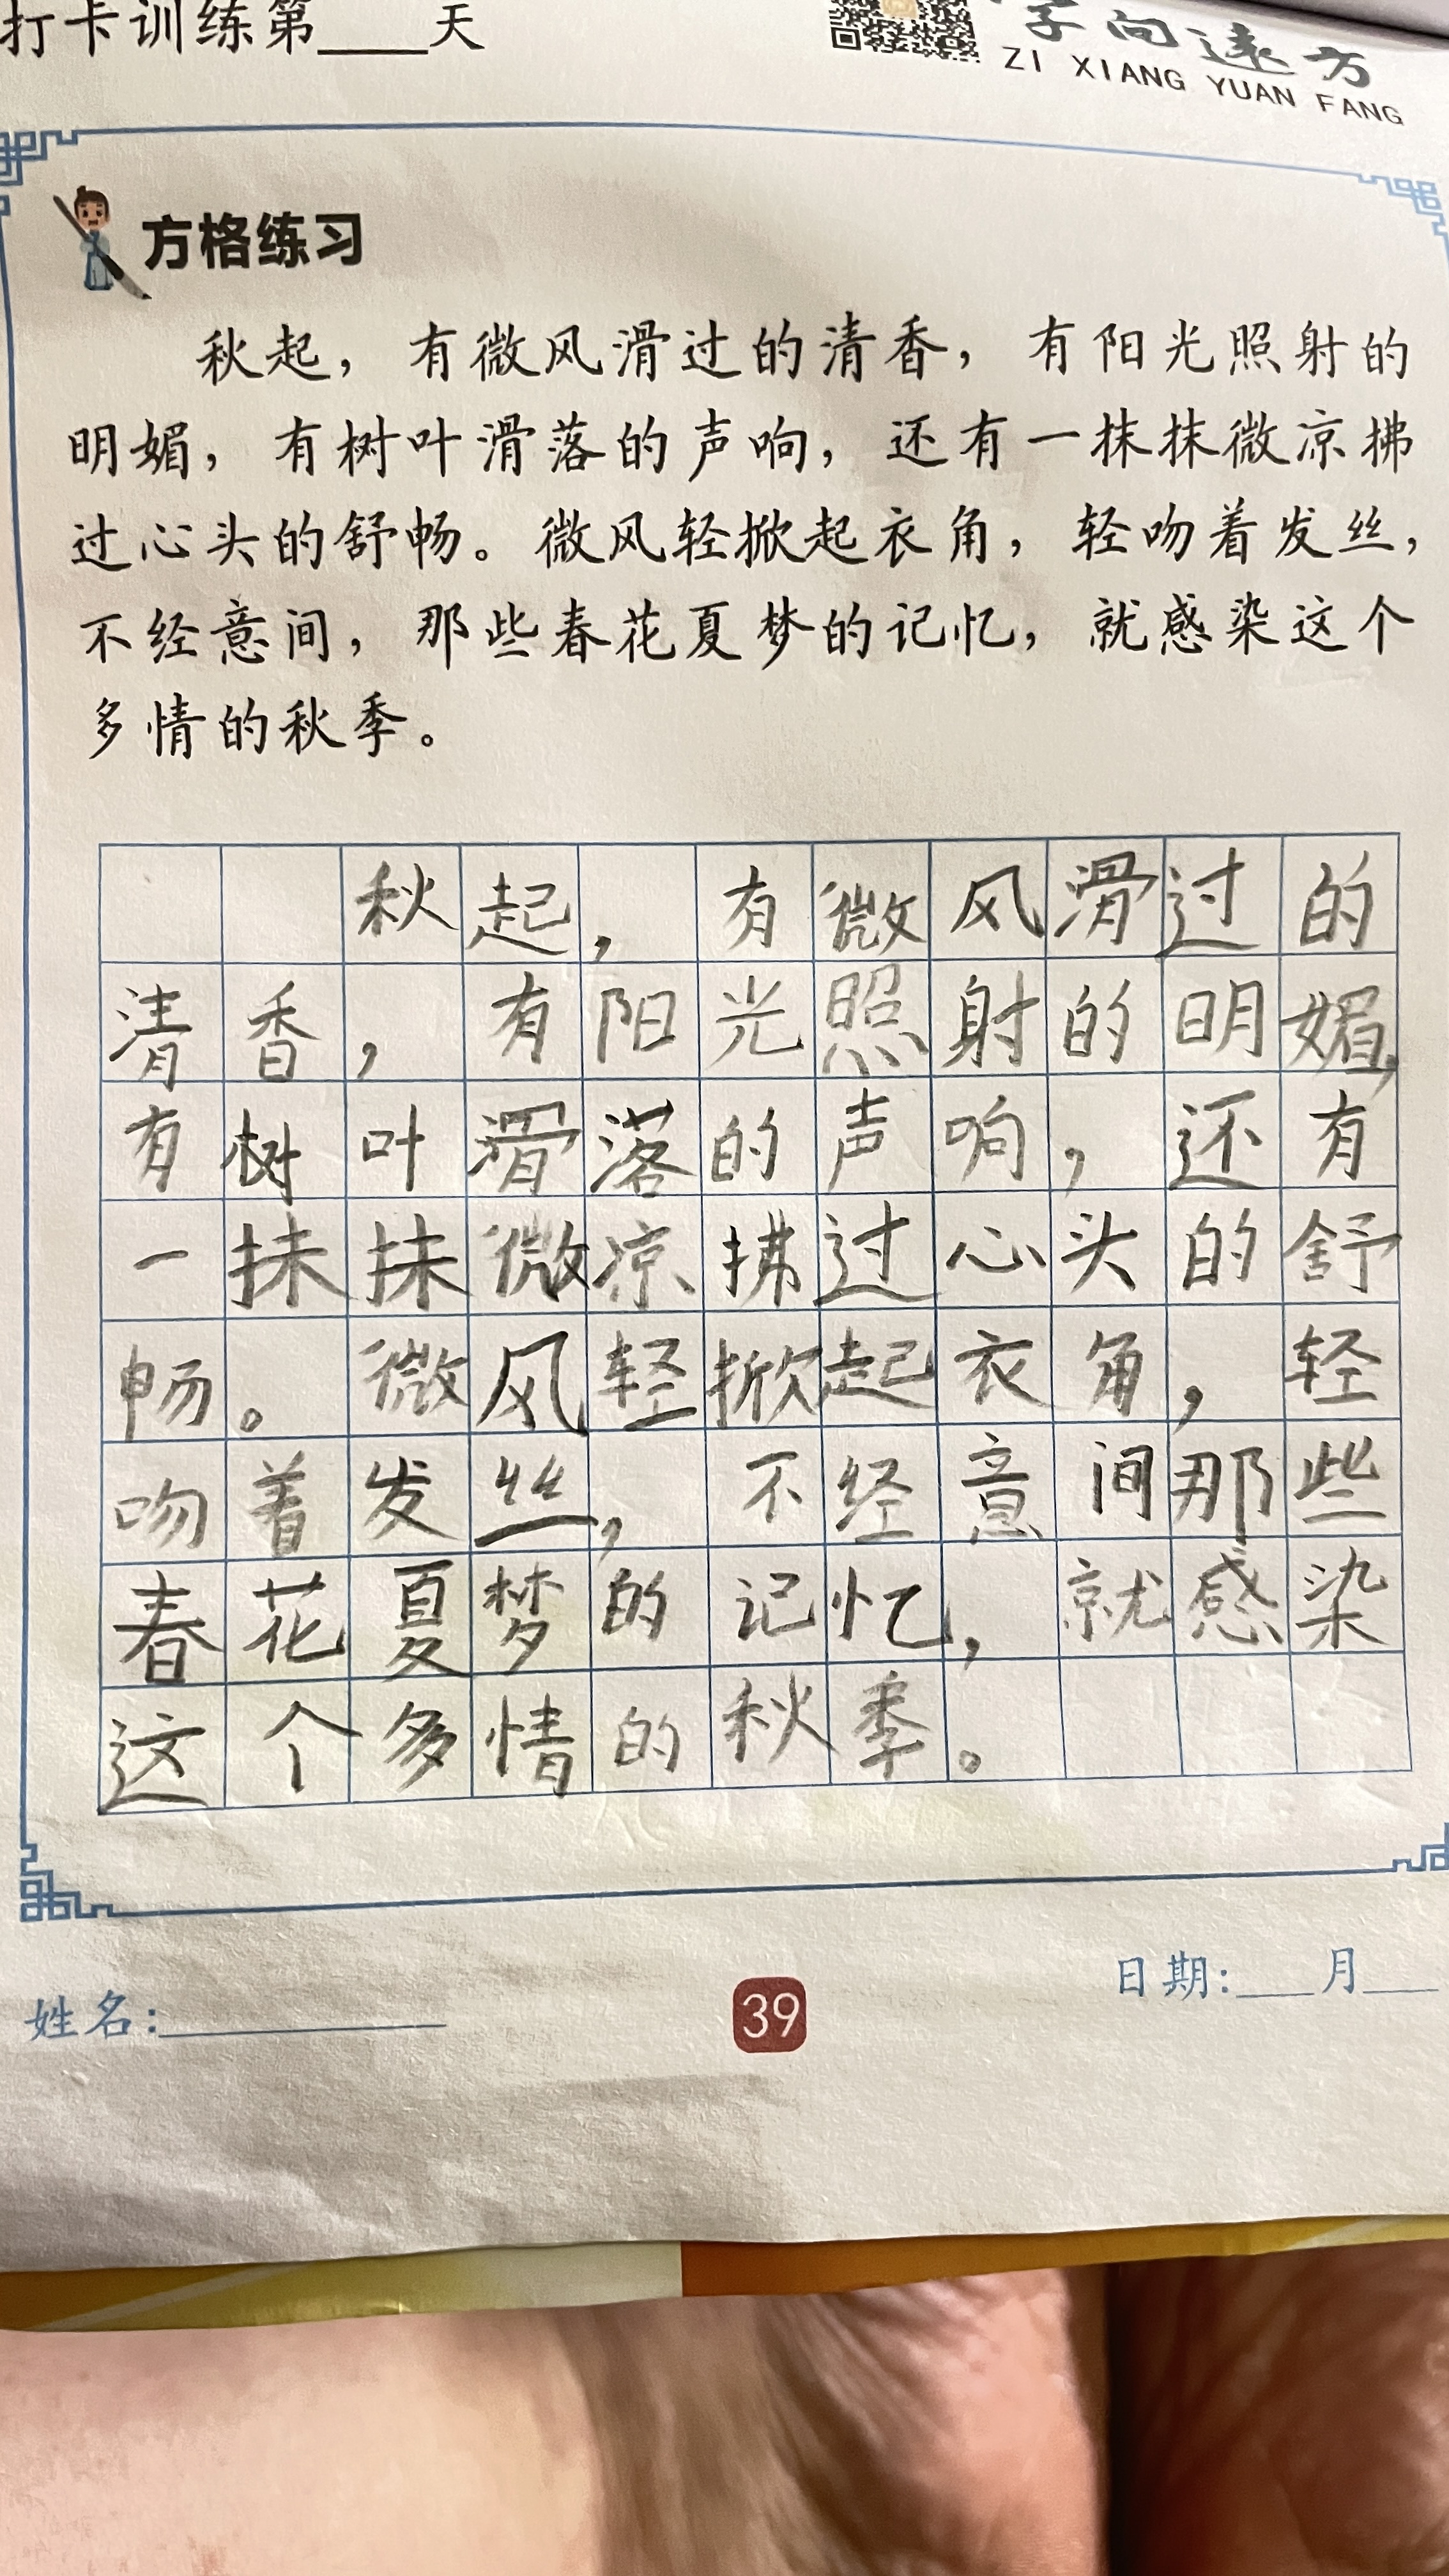 打卡训练第____天
字向远方
ZI XIANG YUAN FANG
方格练习
秋起，有微风滑过的清香，有阳光照射的
明媚，有树叶滑落的声响，还有一抹抹微凉拂
过心头的舒畅。微风轻掀起衣角，轻吻着发丝，
不经意间，那些春花夏梦的记忆，就感染这个
多情的秋季。
秋起，有微风滑过的
清香，有阳光照射的明媚，
有树叶滑落的声响，还有
一抹抹微凉拂过心头的舒
畅。微风轻掀起衣角，轻
吻着发丝，不经意间那些
春花夏梦的记忆，就感染
这个多情的秋季。
姓名：____________
39
日期：___月___